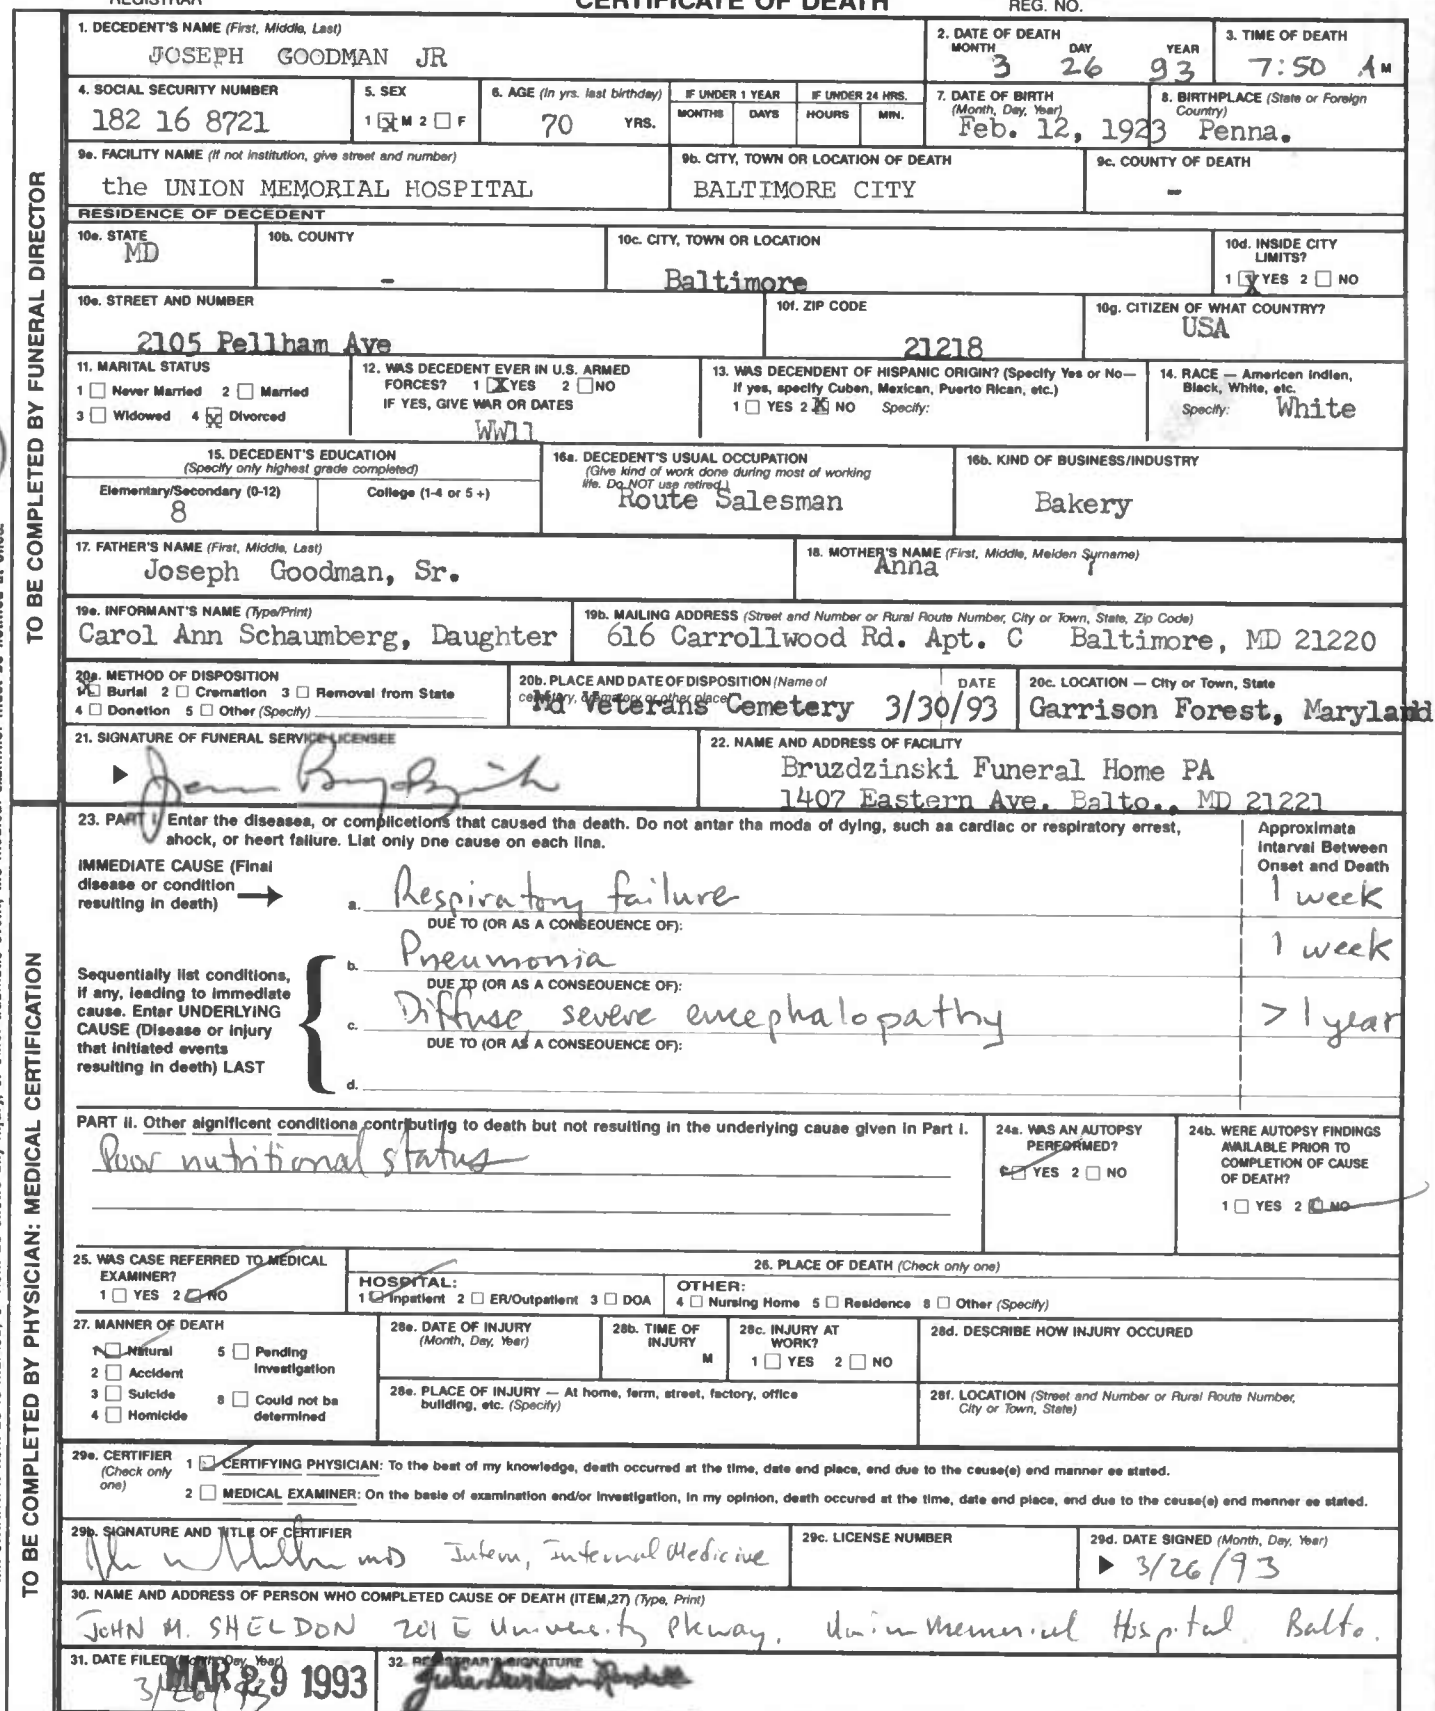 REGISTRAR
CERTIFICATE OF DEATH
REG. NO.
1. DECEDENT'S NAME (First, Middle, Last)
JOSEPH GOODMAN JR
2. DATE OF DEATH
MONTH DAY YEAR
3 26 93
3. TIME OF DEATH
7:50 A M
4. SOCIAL SECURITY NUMBER
182 16 8721
5. SEX
1 ☒ M 2 ☐ F
6. AGE (In yrs. last birthday)
70 YRS.
IF UNDER 1 YEAR
MONTHS DAYS
IF UNDER 24 HRS.
HOURS MIN.
7. DATE OF BIRTH
(Month, Day, Year)
Feb. 12, 1923
8. BIRTHPLACE (State or Foreign
Country)
Penna.
9a. FACILITY NAME (If not institution, give street and number)
the UNION MEMORIAL HOSPITAL
9b. CITY, TOWN OR LOCATION OF DEATH
BALTIMORE CITY
9c. COUNTY OF DEATH
-
RESIDENCE OF DECEDENT
10a. STATE
MD
10b. COUNTY
-
10c. CITY, TOWN OR LOCATION
Baltimore
10d. INSIDE CITY
LIMITS?
1 ☒ YES 2 ☐ NO
10e. STREET AND NUMBER
2105 Pellham Ave
10f. ZIP CODE
21218
10g. CITIZEN OF WHAT COUNTRY?
USA
11. MARITAL STATUS
1 ☐ Never Married 2 ☐ Married
3 ☐ Widowed 4 ☒ Divorced
12. WAS DECEDENT EVER IN U.S. ARMED
FORCES? 1 ☒ YES 2 ☐ NO
IF YES, GIVE WAR OR DATES
WW11
13. WAS DECENDENT OF HISPANIC ORIGIN? (Specify Yes or No—
If yes, specify Cuben, Mexican, Puerto Rican, etc.)
1 ☐ YES 2 ☒ NO Specify:
14. RACE — American Indien,
Black, White, etc.
Specify: White
15. DECEDENT'S EDUCATION
(Specify only highest grade completed)
Elementary/Secondary (0-12)
8
College (1-4 or 5 +)
16a. DECEDENT'S USUAL OCCUPATION
(Give kind of work done during most of working
life. Do NOT use retired.)
Route Salesman
16b. KIND OF BUSINESS/INDUSTRY
Bakery
17. FATHER'S NAME (First, Middle, Last)
Joseph Goodman, Sr.
18. MOTHER'S NAME (First, Middle, Meiden Surname)
Anna ?
19a. INFORMANT'S NAME (Type/Print)
Carol Ann Schaumberg, Daughter
19b. MAILING ADDRESS (Street and Number or Rural Route Number, City or Town, State, Zip Code)
616 Carrollwood Rd. Apt. C Baltimore, MD 21220
20a. METHOD OF DISPOSITION
1 ☒ Burial 2 ☐ Cremation 3 ☐ Removal from State
4 ☐ Donetion 5 ☐ Other (Specify)
20b. PLACE AND DATE OF DISPOSITION (Name of
cemetery, crematory or other place)
DATE
Md Veterans Cemetery 3/30/93
20c. LOCATION — City or Town, State
Garrison Forest, Maryland
21. SIGNATURE OF FUNERAL SERVICE LICENSEE
22. NAME AND ADDRESS OF FACILITY
Bruzdzinski Funeral Home PA
1407 Eastern Ave. Balto., MD 21221
23. PART I. Enter the diseasea, or complicetions that caused tha death. Do not antar tha moda of dying, such aa cardiac or respiratory errest,
ahock, or heert failure. Liat only one cause on each lina.
Approximata
Intarval Between
Onset and Death
IMMEDIATE CAUSE (Final
disease or condition
resulting in death)
a. Respiratory failure 1 week
DUE TO (OR AS A CONSEOUENCE OF):
b. Pneumonia 1 week
DUE TO (OR AS A CONSEOUENCE OF):
c. Diffuse, severe encephalopathy > 1 year
DUE TO (OR AS A CONSEOUENCE OF):
d.
Sequentially list conditions,
if any, leading to immediate
cause. Enter UNDERLYING
CAUSE (Disease or injury
that initiated events
resulting in deeth) LAST
PART II. Other aignificent conditiona contributing to death but not resulting in the underlying cauae given in Part I.
Poor nutritional status
24a. WAS AN AUTOPSY
PERFORMED?
1 ☑ YES 2 ☐ NO
24b. WERE AUTOPSY FINDINGS
AVAILABLE PRIOR TO
COMPLETION OF CAUSE
OF DEATH?
1 ☐ YES 2 ☑ NO
25. WAS CASE REFERRED TO MEDICAL
EXAMINER?
1 ☐ YES 2 ☑ NO
26. PLACE OF DEATH (Check only one)
HOSPITAL:
1 ☑ Inpatient 2 ☐ ER/Outpatient 3 ☐ DOA
OTHER:
4 ☐ Nursing Home 5 ☐ Residence 8 ☐ Other (Specify)
27. MANNER OF DEATH
1 ☑ Natural 5 ☐ Pending
Investigation
2 ☐ Accident
3 ☐ Suicide 8 ☐ Could not be
determined
4 ☐ Homicide
28a. DATE OF INJURY
(Month, Day, Year)
28b. TIME OF
INJURY
M
28c. INJURY AT
WORK?
1 ☐ YES 2 ☐ NO
28d. DESCRIBE HOW INJURY OCCURED
28e. PLACE OF INJURY — At home, ferm, street, factory, office
building, etc. (Specify)
28f. LOCATION (Street and Number or Rural Route Number,
City or Town, State)
29a. CERTIFIER
(Check only
one)
1 ☑ CERTIFYING PHYSICIAN: To the beat of my knowledge, death occurred at the time, date end place, end due to the ceuse(e) end manner ee stated.
2 ☐ MEDICAL EXAMINER: On the basie of examination end/or Investigation, in my opinion, death occured at the time, date end place, end due to the ceuse(e) end menner ee stated.
29b. SIGNATURE AND TITLE OF CERTIFIER
MD Intern, Internal Medicine
29c. LICENSE NUMBER
29d. DATE SIGNED (Month, Day, Year)
3/26/93
30. NAME AND ADDRESS OF PERSON WHO COMPLETED CAUSE OF DEATH (ITEM 27) (Type, Print)
JOHN M. SHELDON 201 E University Pkway, Union Memorial Hospital Balto.
31. DATE FILED (Month, Day, Year)
3/26/93
MAR 29 1993
32. REGISTRAR'S SIGNATURE
TO BE COMPLETED BY FUNERAL DIRECTOR
TO BE COMPLETED BY PHYSICIAN: MEDICAL CERTIFICATION